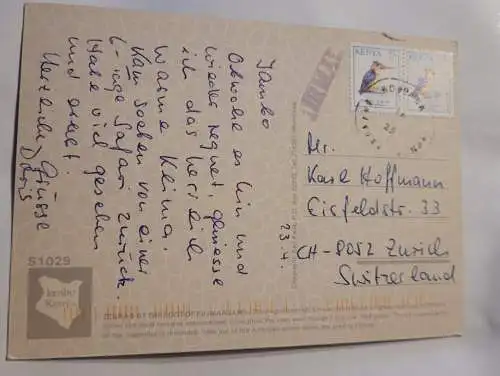 Jambo
Obwohl es hin und
wieder regnet, geniesse
ich das herrlich
warme Klima.
Kam soeben von einer
6-tage Safari zurück.
Habe viel gesehen
und erlebt.
Herzliche Grüsse
Doris
23.4.
AIRMAIL
KENYA
KENYA
Mr.
Karl Hoffmann
Eisfeldstr. 33
CH-8052 Zürich
Switzerland
S1029
Jambo
Kenya